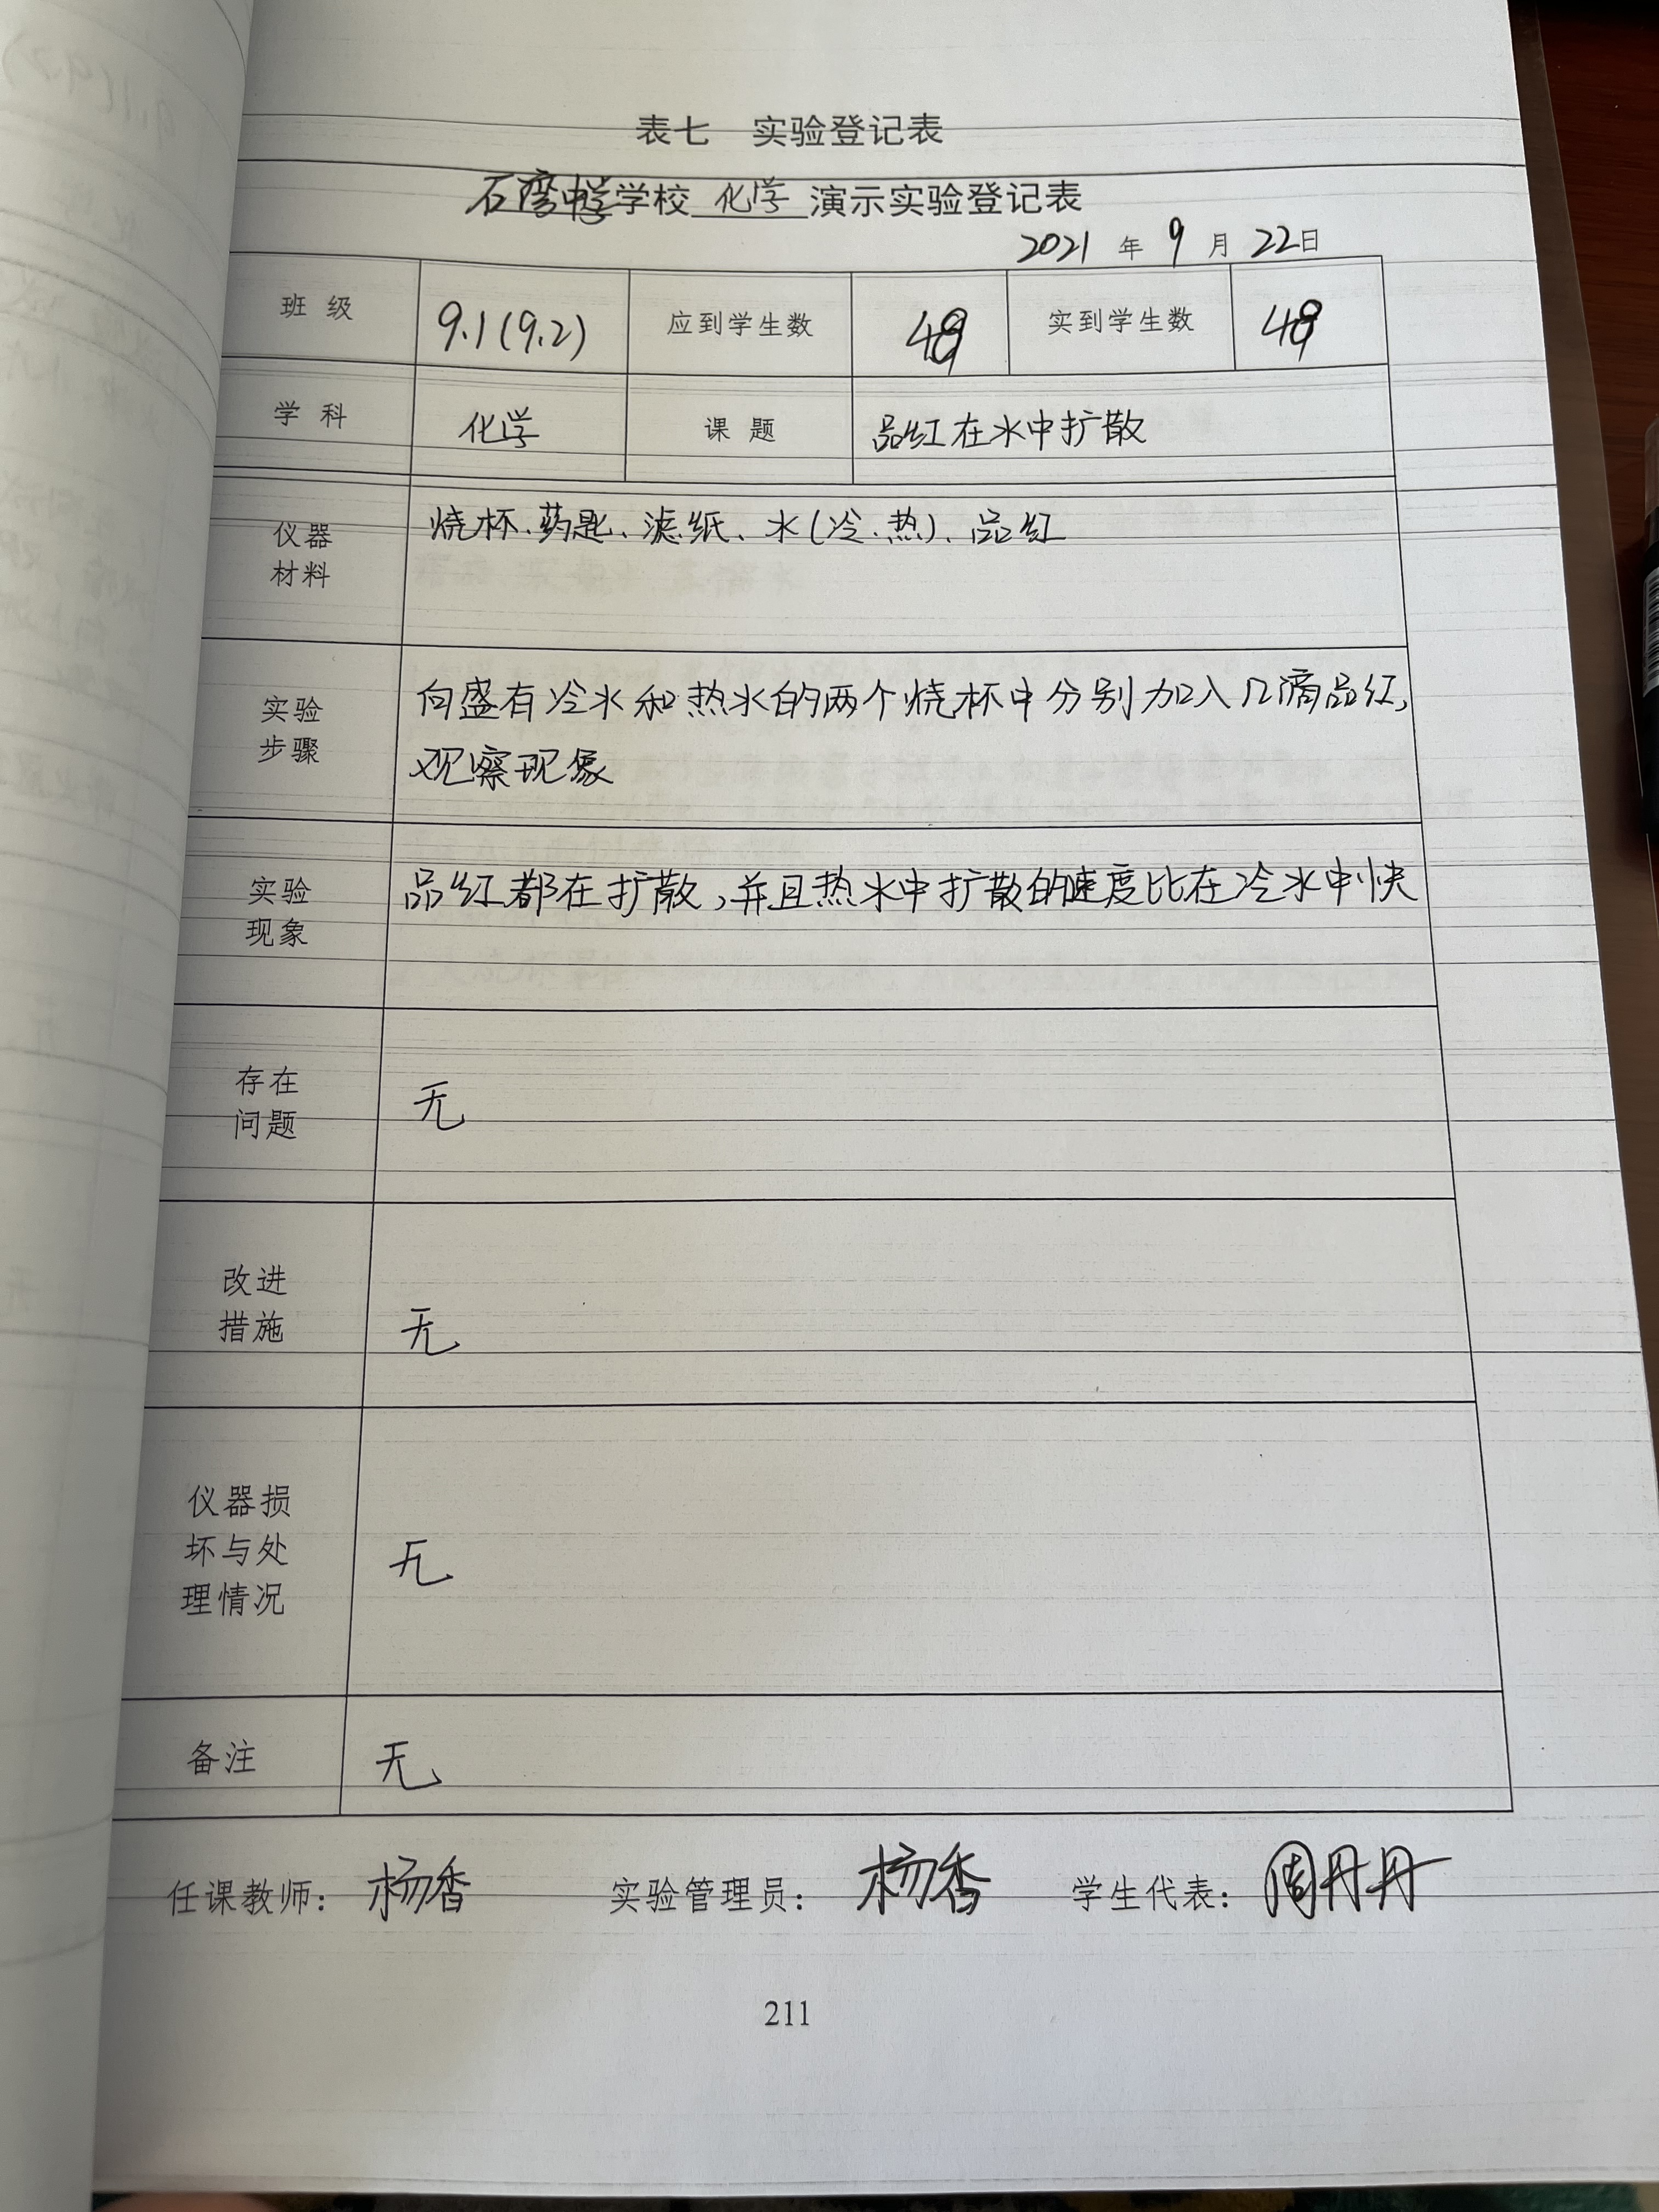 表七 实验登记表
石湾中学学校 化学 演示实验登记表
2021 年 9 月 22日
班 级 9.1(9.2) 应到学生数 实到学生数
学 科 化学 课 题 品红在水中扩散
仪器
材料
烧杯、药匙、滤纸、水(冷.热)、品红
实验
步骤
向盛有冷水和热水的两个烧杯中分别加入几滴品红,
观察现象
实验
现象
品红都在扩散,并且热水中扩散的速度比在冷水中快
存在
问题
无
改进
措施
无
仪器损
坏与处
理情况
无
备注 无
任课教师: 杨香 实验管理员: 杨香 学生代表: 周丹丹
211